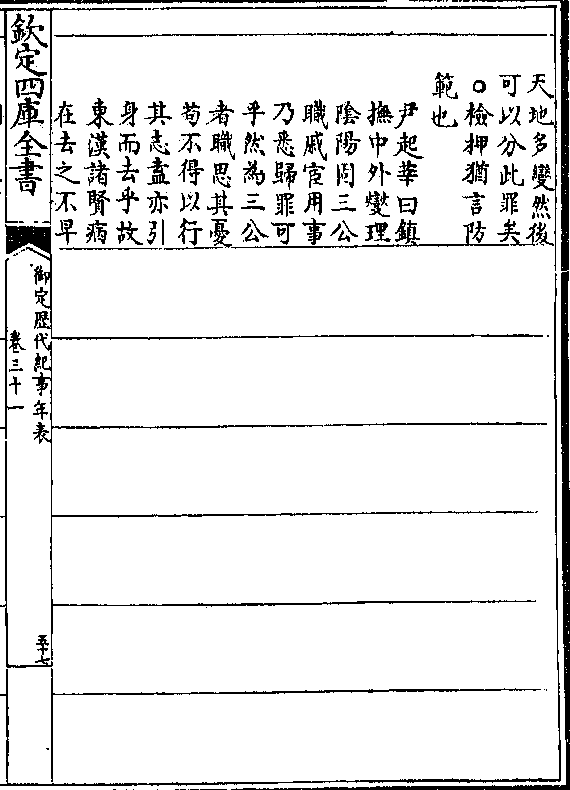 天地多變然後
可以分此罪矣
○檢押猶言防
範也
尹起莘曰鎮
撫中外燮理
陰陽固三公
職戚宦用事
乃悉歸罪可
乎然為三公
者職思其憂
苟不得以行
其志盍亦引
身而去乎故
東漢諸賢病
在去之不早
欽定四庫全書
御定歴代紀事年表
卷三十一
五十七